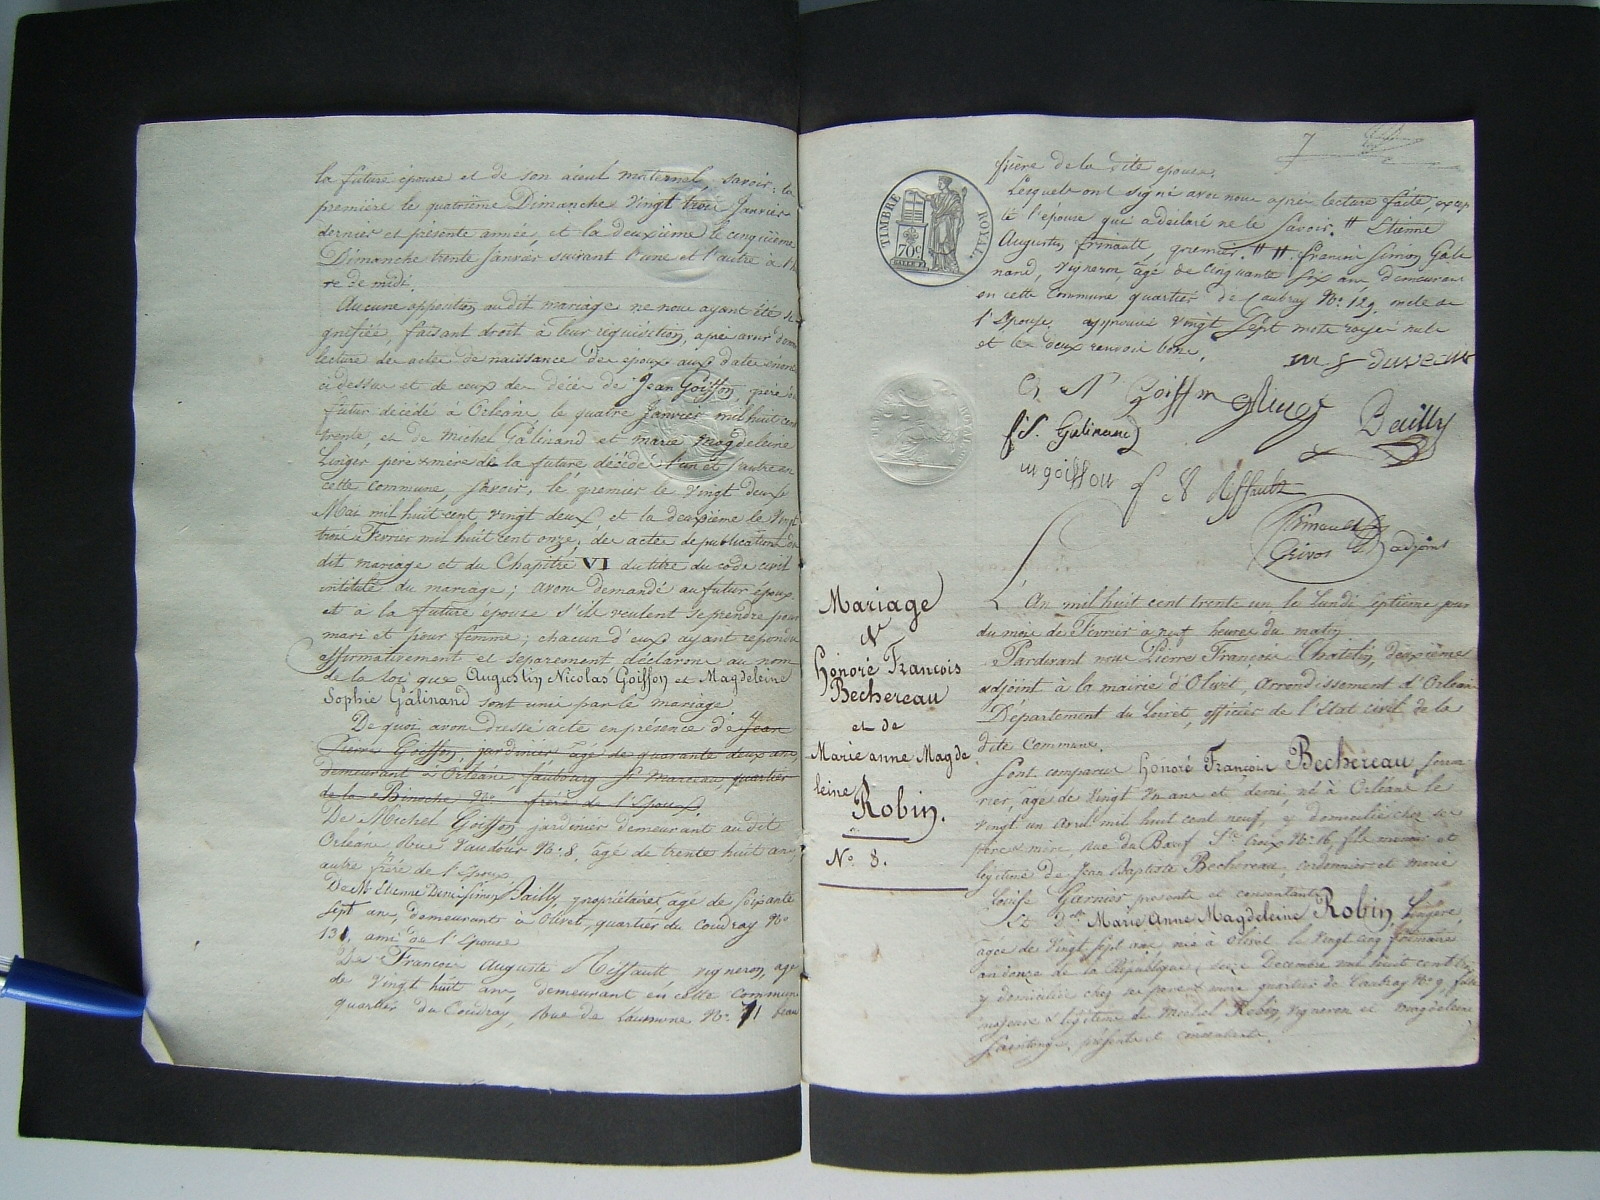 la future épouse et de son aieul maternel, savoir: la
première le quatrième Dimanche vingt trois Janvier
dernier et présente année, et la deuxième le cinquième
Dimanche trente Janvier suivant l'une et l'autre à l'heu
re de midi.
Aucune opposition audit mariage ne nous ayant été si
gnifiée, faisant droit à leur réquisition, après avoir donné
lecture des actes de naissance des époux aux dates énoncées
ci dessus et de ceux des décès de Jean Goiffon, père du
futur décédé à Orléans le quatre Janvier mil huit cent
trente, et de Michel Galinand et marie magdeleine
Linger père & mère de la future décédés l'un et l'autre en
cette commune, savoir, le premier le vingt deux
Mai mil huit cent vingt deux et la deuxième le vingt
trois Fevrier mil huit cent onze; des actes de publications du
dit mariage et du Chapitre VI du titre du code civil
intitulé du mariage; avons demandé au futur époux
et à la future épouse s'ils veulent se prendre pour
mari et pour femme; chacun d'eux ayant répondu
affirmativement et séparement déclarons au nom
de la loi que Augustin Nicolas Goiffon et Magdeleine
Sophie Galinand sont unis par le mariage.
De quoi avons dressé acte en présence de Jean
Pierre Goiffon, jardinier âgé de quarante deux ans,
demeurant à Orléans, faubourg St Marceau, quartier
de la Binoche No frère de l'Epoux.
De Michel Goiffon jardinier demeurant audit
Orléans Rue Vaudour No 8, âgé de trente huit ans,
autre frère de l'époux
De Mr Etienne Denis Simon Bailly, propriétaire, âgé de soixante
sept ans, demeurant à Olivet, quartier du Coudray No
131, ami de l'Epouse
De François Auguste Riffault vigneron, agé
de vingt huit ans, demeurant en cette commune
quartier du Coudray, Rue de Laumone No 71 beau
7
frère de la dite épouse.
Lesquels ont signé avec nous après lecture faite, excep
té l'épouse qui a déclaré ne le savoir. # Etienne
Augustin, Grinault, premier. # # francois Simon Gali
nand, vigneron, âgé de cinquante six ans demeurant
en cette commune quartier de Caubray No 129, oncle de
l'Epouse. approuvé vingt sept mots rayés nuls
et les deux renvois bons.
TIMBRE ROYAL.
70c
a N Goiffon
Bailly
f S. Galinand
m goiffon
f A Riffault
adjoint
Mariage
de
Honoré François
Bechereau
et de
Marie anne Magde
leine
Robin.
No 8.
L'An mil huit cent trente un le Lundi septième jour
du mois de Fevrier à neuf heures du matin
Pardevant nous Pierre François Chatelin, deuxième
adjoint à la mairie d'Olivet, Arrondissement d'Orléans
Département du Loiret, officier de l'Etat civil de la
dite Commune.
Sont comparus Honoré François Bechereau, serru
rier, âgé de vingt un ans et demi, né à Orléans le
vingt un Avril mil huit cent neuf, y domicilié chez ses
père & mère, rue du Bœuf Ste Croix No 16, fils mineur et
légitime de Jean Baptiste Bechereau, cordonnier et marie
Loise Garnier presents et consentants
Et dlle Marie Anne Magdeleine Robin, Lingère,
âgée de vingt sept ans née à Olivet le vingt cinq frimaire
an douze de la République (seize Décembre mil huit cent
y domiciliée chez ses père & mère quartier de Caubray No 9, fille
majeure & légitime de Michel Robin, vigneron et magdeleine
Saintonge, présents et consentants.